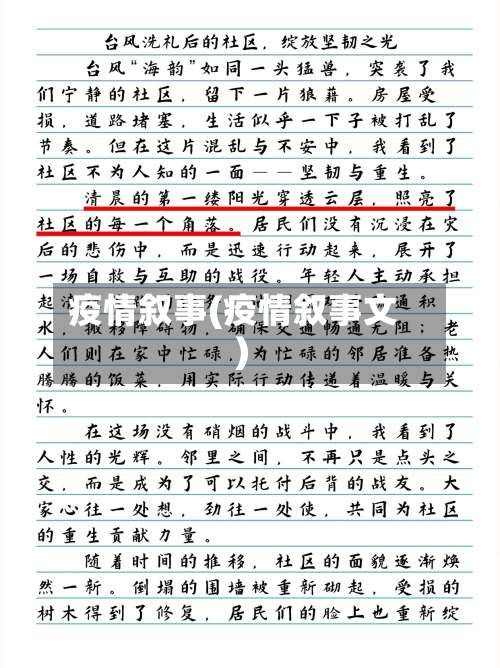 台风洗礼后的社区，绽放坚韧之光
台风“海韵”如同一头猛兽，突袭了我
们宁静的社区，留下一片狼藉。房屋受
损，道路堵塞，生活似乎一下子被打乱了
节奏。但在这片混乱与不安中，我看到了
社区不为人知的一面——坚韧与重生。
清晨的第一缕阳光穿透云层，照亮了
社区的每一个角落。居民们没有沉浸在灾
后的悲伤中，而是迅速行动起来，展开了
一场自救与互助的战役。年轻人主动承担
起
疫情叙事(疫情叙事文
)
通积
水，搬移障碍物，确保交通畅通无阻；老
人们则在家中忙碌，为忙碌的邻居准备热
腾腾的饭菜，用实际行动传递着温暖与关
怀。
在这场没有硝烟的战斗中，我看到了
人性的光辉。邻里之间，不再只是点头之
交，而是成为了可以托付后背的战友。大
家心往一处想，劲往一处使，共同为社区
的重生贡献力量。
随着时间的推移，社区的面貌逐渐焕
然一新。倒塌的围墙被重新砌起，受损的
树木得到了修复，居民们的脸上也重新绽